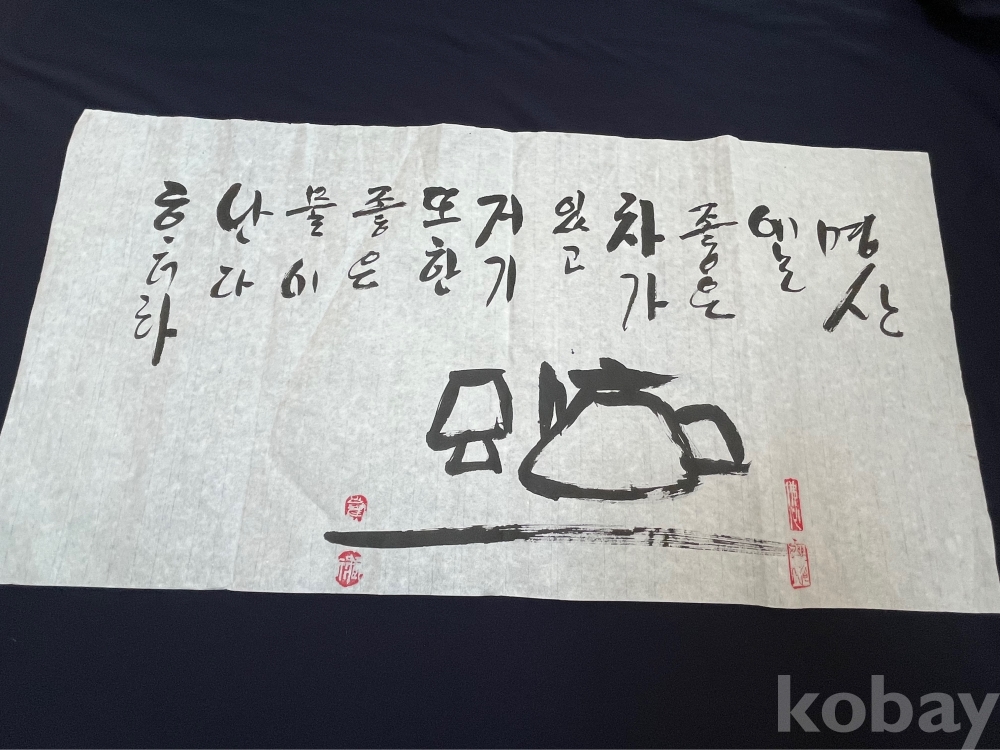 명산
엔
좋은
차가
있고
저기
또한
좋은
물이
난다
ᄒᆞ더라
kobay